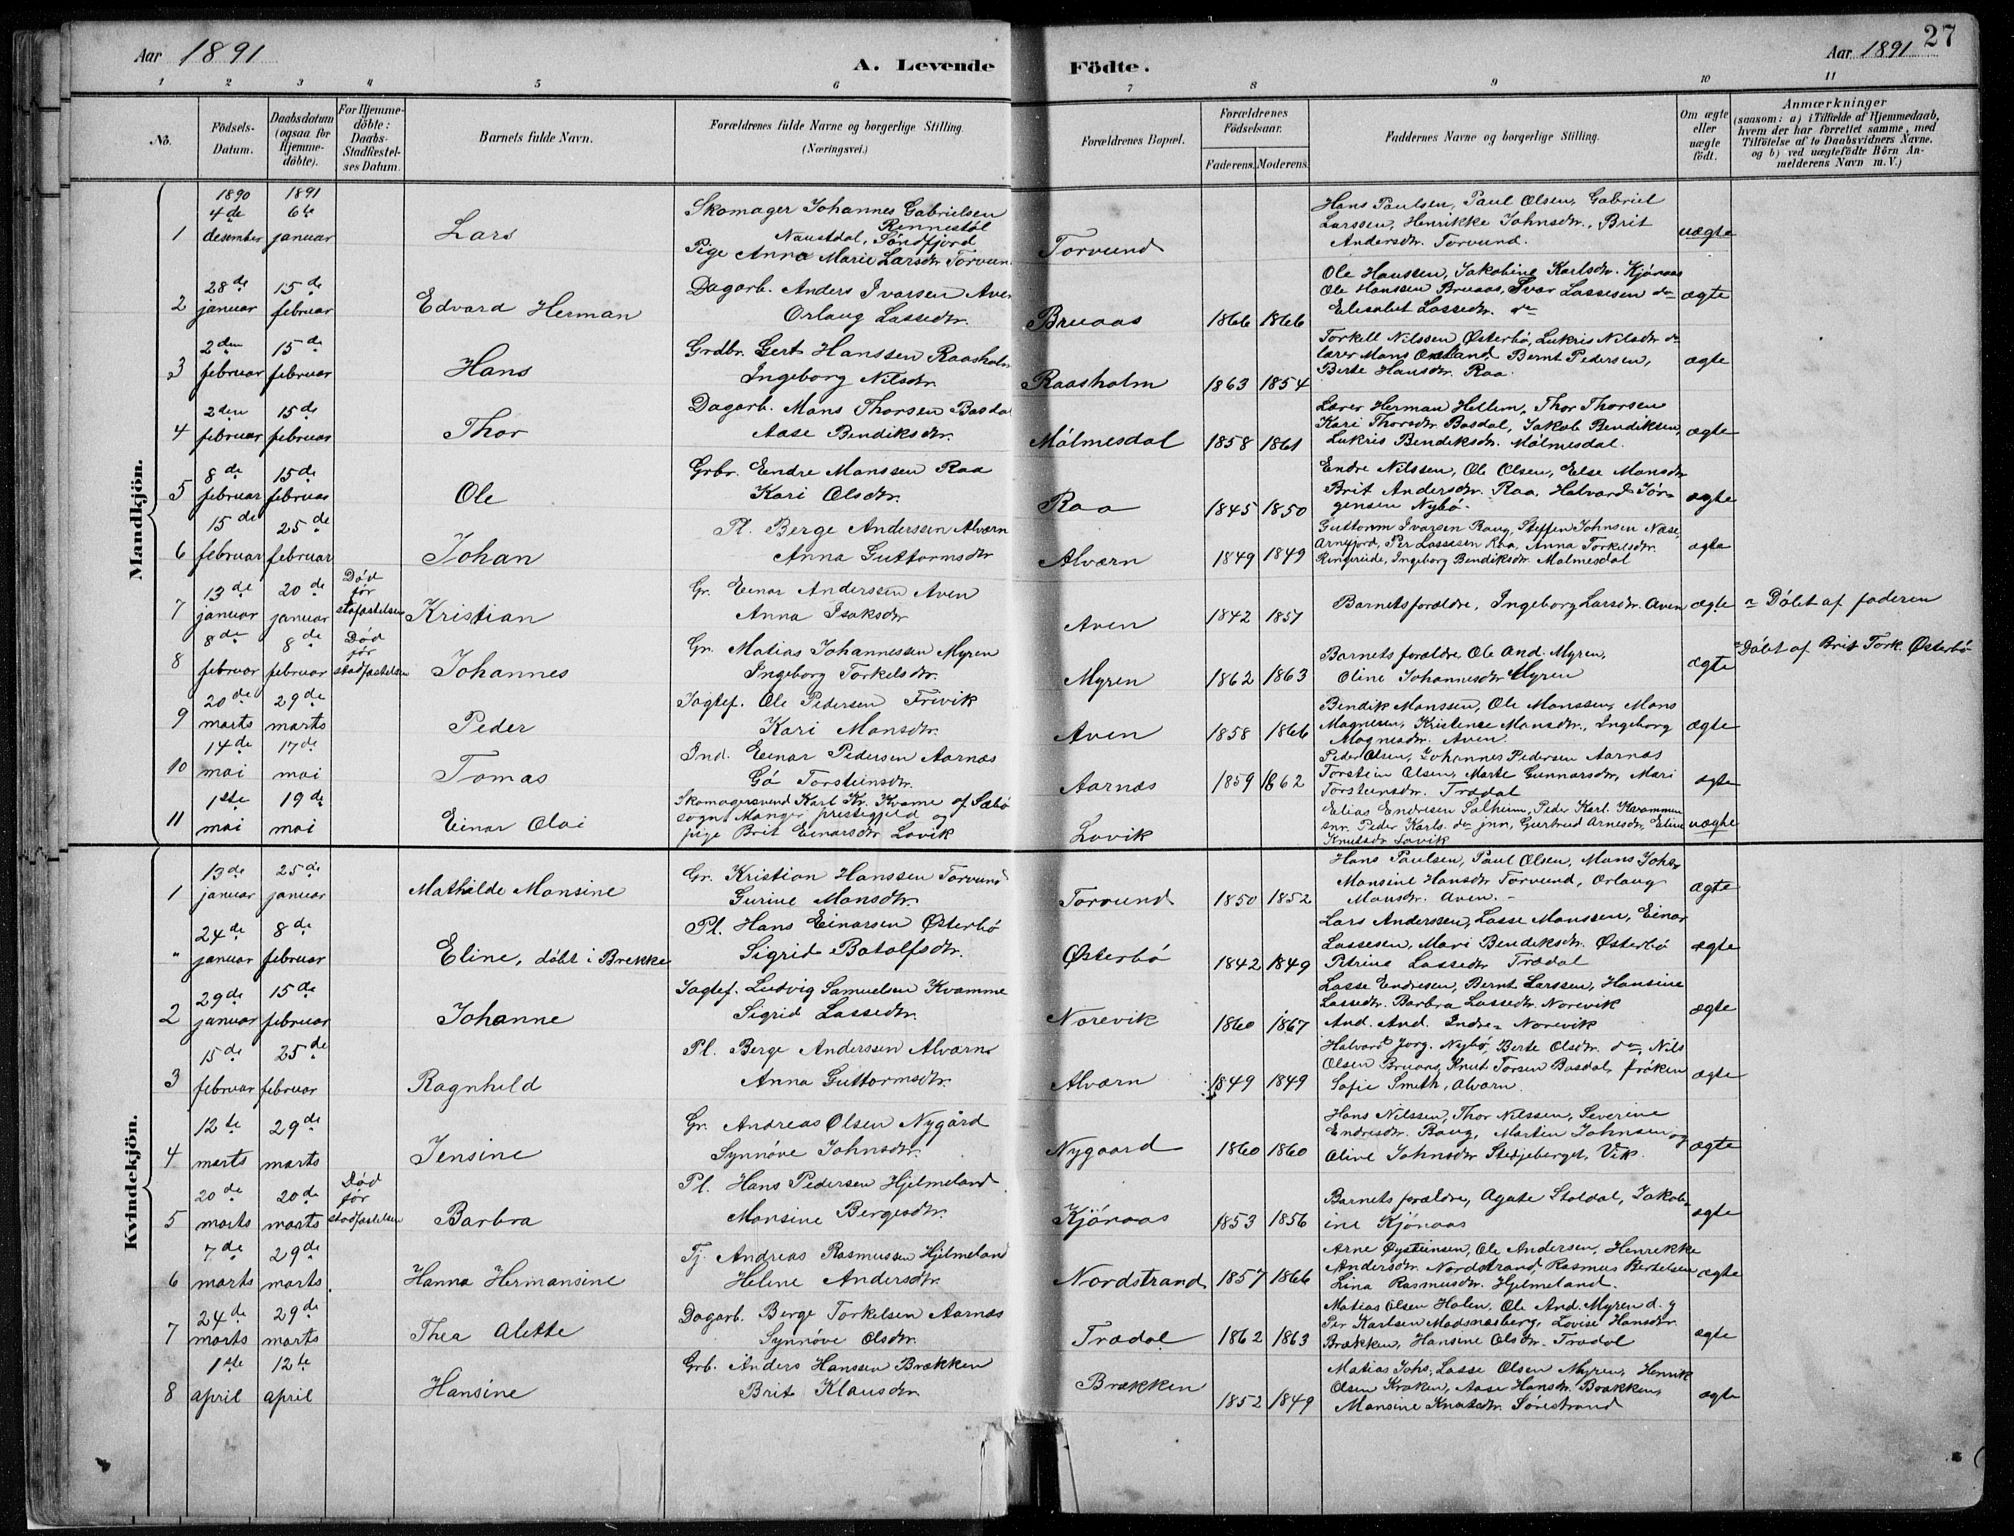 Aar 1891
A. Levende Födte.
Aar 1891
27
1 2 3 4 5 6 7 8 9 10 11
No.
Födsels-Datum.
Daabsdatum (ogsaa for Hjemme-döbte).
For Hjemme-döbte: Daabs-Stadfæstel-ses Datum.
Barnets fulde Navn.
Forældrenes fulde Navne og borgerlige Stilling. (Næringsvei.)
Forældrenes Bopæl.
Forældrenes Födselsaar.
Faderens. Moderens.
Faddernes Navne og borgerlige Stilling.
Om ægte eller uægte födt.
Anmærkninger
(saasom: a) i Tilfælde af Hjemmedaab, hvem der har forrettet samme, med Tilföielse af to Daabsvidners Navne. og b) ved uægtefödte Börn Anmelderens Navn m. V.)
Mandkjön.
1890 1891
4de 6te
1 desember januar Lars
Skomager Johannes Gabrielsen
Rennestøl
Naustdal, Söndfjord
Pige Anna Marie Larsdtr Torvund
Torvund
Hans Paulsen, Paul Olsen, Gabriel
Larssen, Henrikke Johnsdtr., Brit
Andersdtr. Torvund.
uægte
28de 15de
2 januar februar Edvard Herman
Dagarb. Anders Ivarsen Aven
Orlaug Lassedtr.
Bruaas 1866 1866
Ole Hanssen, Jakobine Karlsdtr. Kjönaas
Ole Hanssen Bruaas, Ivar Lassesen do
Elisabet Lassedtr. do
ægte
2den 15de
3 februar februar Hans
Grdbr. Gert Hanssen Raasholm
Ingeborg Nilsdtr.
Raasholm 1863 1854
Torkell Nilssen Østerbö, Lukris Nilsdtr do
lærer Mons Ortland, Bernt Pedersen,
Berte Hansdtr. Raa.
ægte
2den 15de
4 februar februar Thor
Dagarb. Mons Thorsen Basdal
Aase Bendiksdtr.
Målmesdal 1858 1861
Lærer Herman Hellem, Thor Thorsen
Kari Thorsdtr. Basdal, Jakob Bendiksen,
Lukris Bendiksdtr. Målmesdal.
ægte
8de 15de
5 februar februar Ole
Grbr. Endre Monssen Raa
Kari Olsdtr.
Raa 1845 1850
Endre Nilssen, Ole Olsen, Else Monsdtr
Brit Andersdtr. Raa, Halvard Jör-
gensen Nybö.
ægte
15de 25de
6 februar februar Johan
Pl. Berge Anderssen Alværn
Anna Guttormsdtr
Alværn 1849 1849
Guttorm Ivarsen Raug, Steffen Johnsen Næse,
Arnefjord, Per Lassesen Raa, Anna Torkelsdtr.
Ringereide, Ingeborg Bendiksdtr. Målmesdal
ægte
13de 20de Död för
7 januar januar stafæstelsen Kristian
Gr. Einar Anderssen Aven
Anna Isaksdtr.
Aven 1842 1857
Barnets forældre, Ingeborg Larsdtr. Aven
ægte
Döbt af faderen
8de 8de Död för
8 februar februar stadfæstelsen Johannes
Gr. Matias Johannessen Myren
Ingeborg Torkelsdtr.
Myren 1862 1863
Barnets forældre, Ole And. Myren,
Oline Johannesdtr Myren
ægte
Döbt af Brit Tork. Østerbö
20de 29de
9 marts marts Peder
Jagtef. Ole Pedersen Trivik
Kari Monsdtr.
Aven 1858 1866
Bendik Monssen, Ole Monssen, Mons
Magnesen, Kristense Monsdtr., Ingeborg
Magnesdtr. Aven
ægte
14de 17de
10 mai mai Tomas
Ind. Einar Pedersen Aarnæs
Gö Torsteinsdtr.
Aarnæs 1859 1862
Peder Olsen, Johannes Pedersen Aarnæs
Torstein Olsen, Marte Gunnarsdtr, Mari
Torsteinsdtr. Trædal
ægte
1ste 19de
11 mai mai Einar Olai
Skomagersvend Karl Kr. Kvame af Sæbö
sogn, Manger prestegjeld og
pige Brit Einarsdtr Lavik
Lavik
Elias Endresen Solheim, Peder Karl. Kvammen
snr. Peder Karls. do jnr, Gurtrud Arnesdtr, Eline
Knutsdtr Lavik
uægte
Kvindekjön.
13de 25de
1 januar januar Mathilde Monsine
Gr. Kristian Hanssen Torvund
Gurine Monsdtr.
Torvund 1850 1852
Hans Paulsen, Paul Olsen, Mons Johs.
Monsine Hansdtr Torvund, Orlaug
Monsdtr. Aven.
ægte
24de 8de
" januar februar Eline, döbt i Brekke
Pl. Hans Einarsen Østerbö
Sigrid Batolfsdtr.
Østerbö 1842 1849
Lars Anderssen, Lasse Monssen, Einar
Lassesen, Mari Bendiksdtr. Østerbö
Petrine Lassedtr Trædal
ægte
29de 15de
2 januar februar Johanne
Jagtef. Ludvig Samuelsen Kvamme
Sigrid Lassedtr.
Norevik 1860 1867
Lasse Endresen, Bernt Larssen, Hansine
Lassedtr. Barbra Lassedtr. Norevik
And. And. Indre- Norevik
ægte
15de 25de
3 februar februar Ragnhild
Pl. Berge Anderssen Alværn
Anna Guttormsdtr.
Alværn 1849 1849
Halvard Jorg. Nybø, Berte Olsdtr. do, Nils
Olsen Bruaas, Knut Torsen Basdal, fröken
Sofie Smith, Alværn.
ægte
12te 29de
4 marts marts Jensine
Gr. Andreas Olsen Nygård
Synnöve Johnsdtr.
Nygaard 1860 1860
Hans Nilssen, Thor Nilssen, Severine
Endresdtr. Raug, Martin Johnsen og
Oline Johnsdtr Stedjeberget, Vik.
ægte
20de 20de Död för
5 marts marts stadfæstelsen Barbra
Pl. Hans Pedersen Hjelmeland
Monsine Bergesdtr.
Kjönaas 1853 1856
Barnets forældre, Agate Stöldal, Jakob-
ine Kjönaas
ægte
7de 29de
6 marts marts Hanna Hermansine
Tj. Andreas Rasmussen Hjelmeland
Heline Andersdtr.
Nordstrand 1857 1866
Arne Øysteinsen, Ole Andersen, Henrikke
Andersdtr. Nordstrand, Rasmus Bertelsen
Lina Rasmusdtr. Hjelmeland.
ægte
24de 29de
7 marts marts Thea Alette
Dagarb. Berge Torkelsen Aarnæs
Synnöve Olsdtr.
Trædal 1862 1863
Matias Olsen Halen, Ole And. Myren d. y
Per Karlsen Madsnæsberg, Lovise Hansdtr.
Brækken, Hansine Olsdtr. Trædal
ægte
1ste 12te
8 april april Hansine
Grb. Anders Hanssen Brækken
Brit Klausdtr.
Brækken 1852 1849
Matias Johs, Lasse Olsen Myren, Henrik
Olsen Kraken, Aase Hansdtr. Brækken,
Monsine Knutsdtr. Sörestrand
ægte